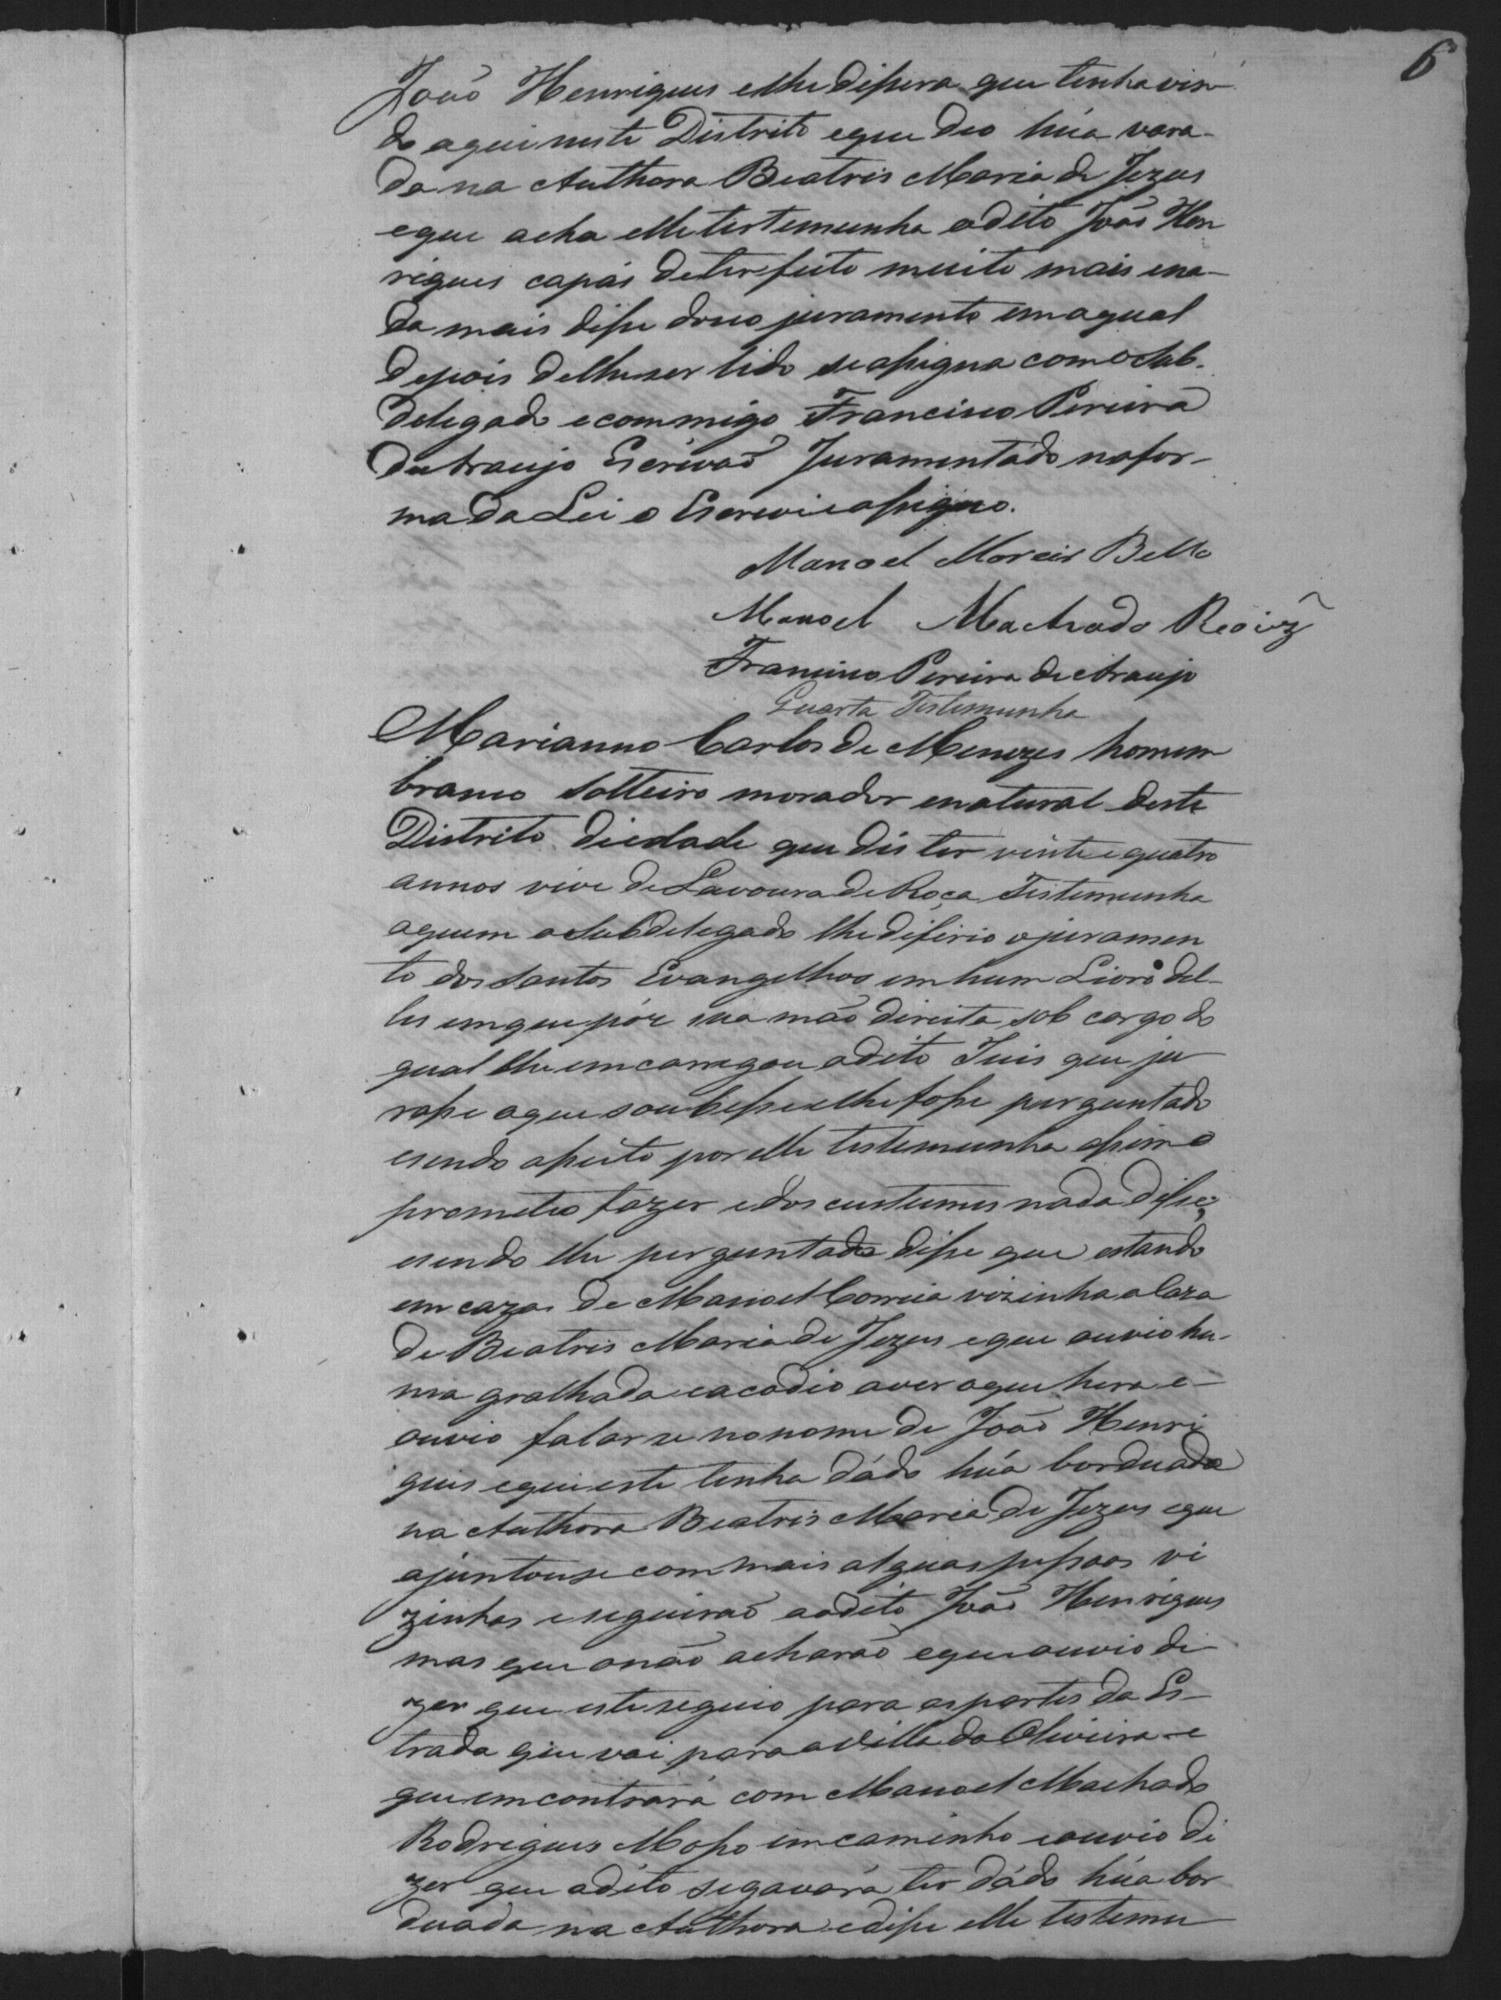 6
João Henriques elhe dissera que tinha vin-
do aqui neste Distrito eque deo húa vara-
da na Authora Beatris Maria de Jezus
eque acha elle testemunha odito João Hen
riques capás deter feito muito mais ena-
da mais disse doseo juramento em aqual
depois delhe ser lido se assigna com o Sub-
delegado ecommigo Francisco Pereira
de Araujo Escrivaõ Juramentádo nafor-
ma da Lei o Escrevi e assigno.
Manoel Moreir Bello
Manoel Machado Roiz
Francisco Pereira de Araujo
Quarta Testemunha
Marianno Carlos de Menezes homem
branco solteiro morador enatural deste
Distrito deidade que dis ter vinte equatro
annos vive de Lavoura de Roça Testemunha
aquem o Subdelegado lhe diferio o juramen
to dos Santos Evangelhos em hum Livro del-
les em que pór sua mão direita sob cargo do
qual lhe emcarregou odito Juis que ju
rasse o que soubesse elhe fosse perguntado
esendo aseito por elle testemunha assim o
prometeo fazer edos custumes nada disse,
esendo lhe perguntado disse que estando
em cazas de Manoel Correia vizinha a Caza
de Beatris Maria de Jezus eque ouvio hu-
ma gralhada eacodio aver oque hera e-
ouvio falar se no nome de João Henri
ques eque este tinha dádo húa borduada
na Authora Beatris Maria de Jezus eque
ajuntouse com mais alguas pessoas vi
zinhas eseguiraõ aodito João Henriques
mas que onaõ acharaõ eque ouvio di
zer que este seguio para as partes da Es-
trada que vai para a Villa da Oliveira e
que emcontrará com Manoel Machado
Rodrigues Mosso em caminho eouvio di
zer que odito segavará ter dádo húa bor
duada na Authora edisse elle testemu